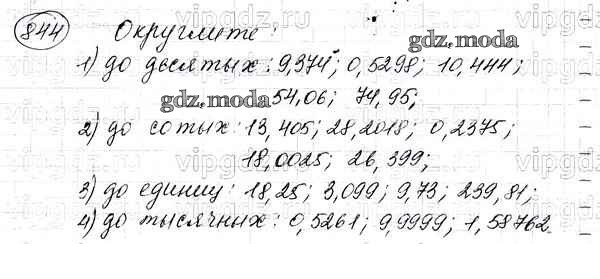 844 Округлите:
1) до десятых: 9,374; 0,5298; 10,444;
54,06; 74,95;
2) до сотых: 13,405; 28,2018; 0,2375;
18,0025; 26,399;
3) до единиц: 18,25; 3,099; 9,73; 239,81;
4) до тысячных: 0,5261; 9,9999; 1,58762
gdz.moda
gdz.moda
vipgdz.ru